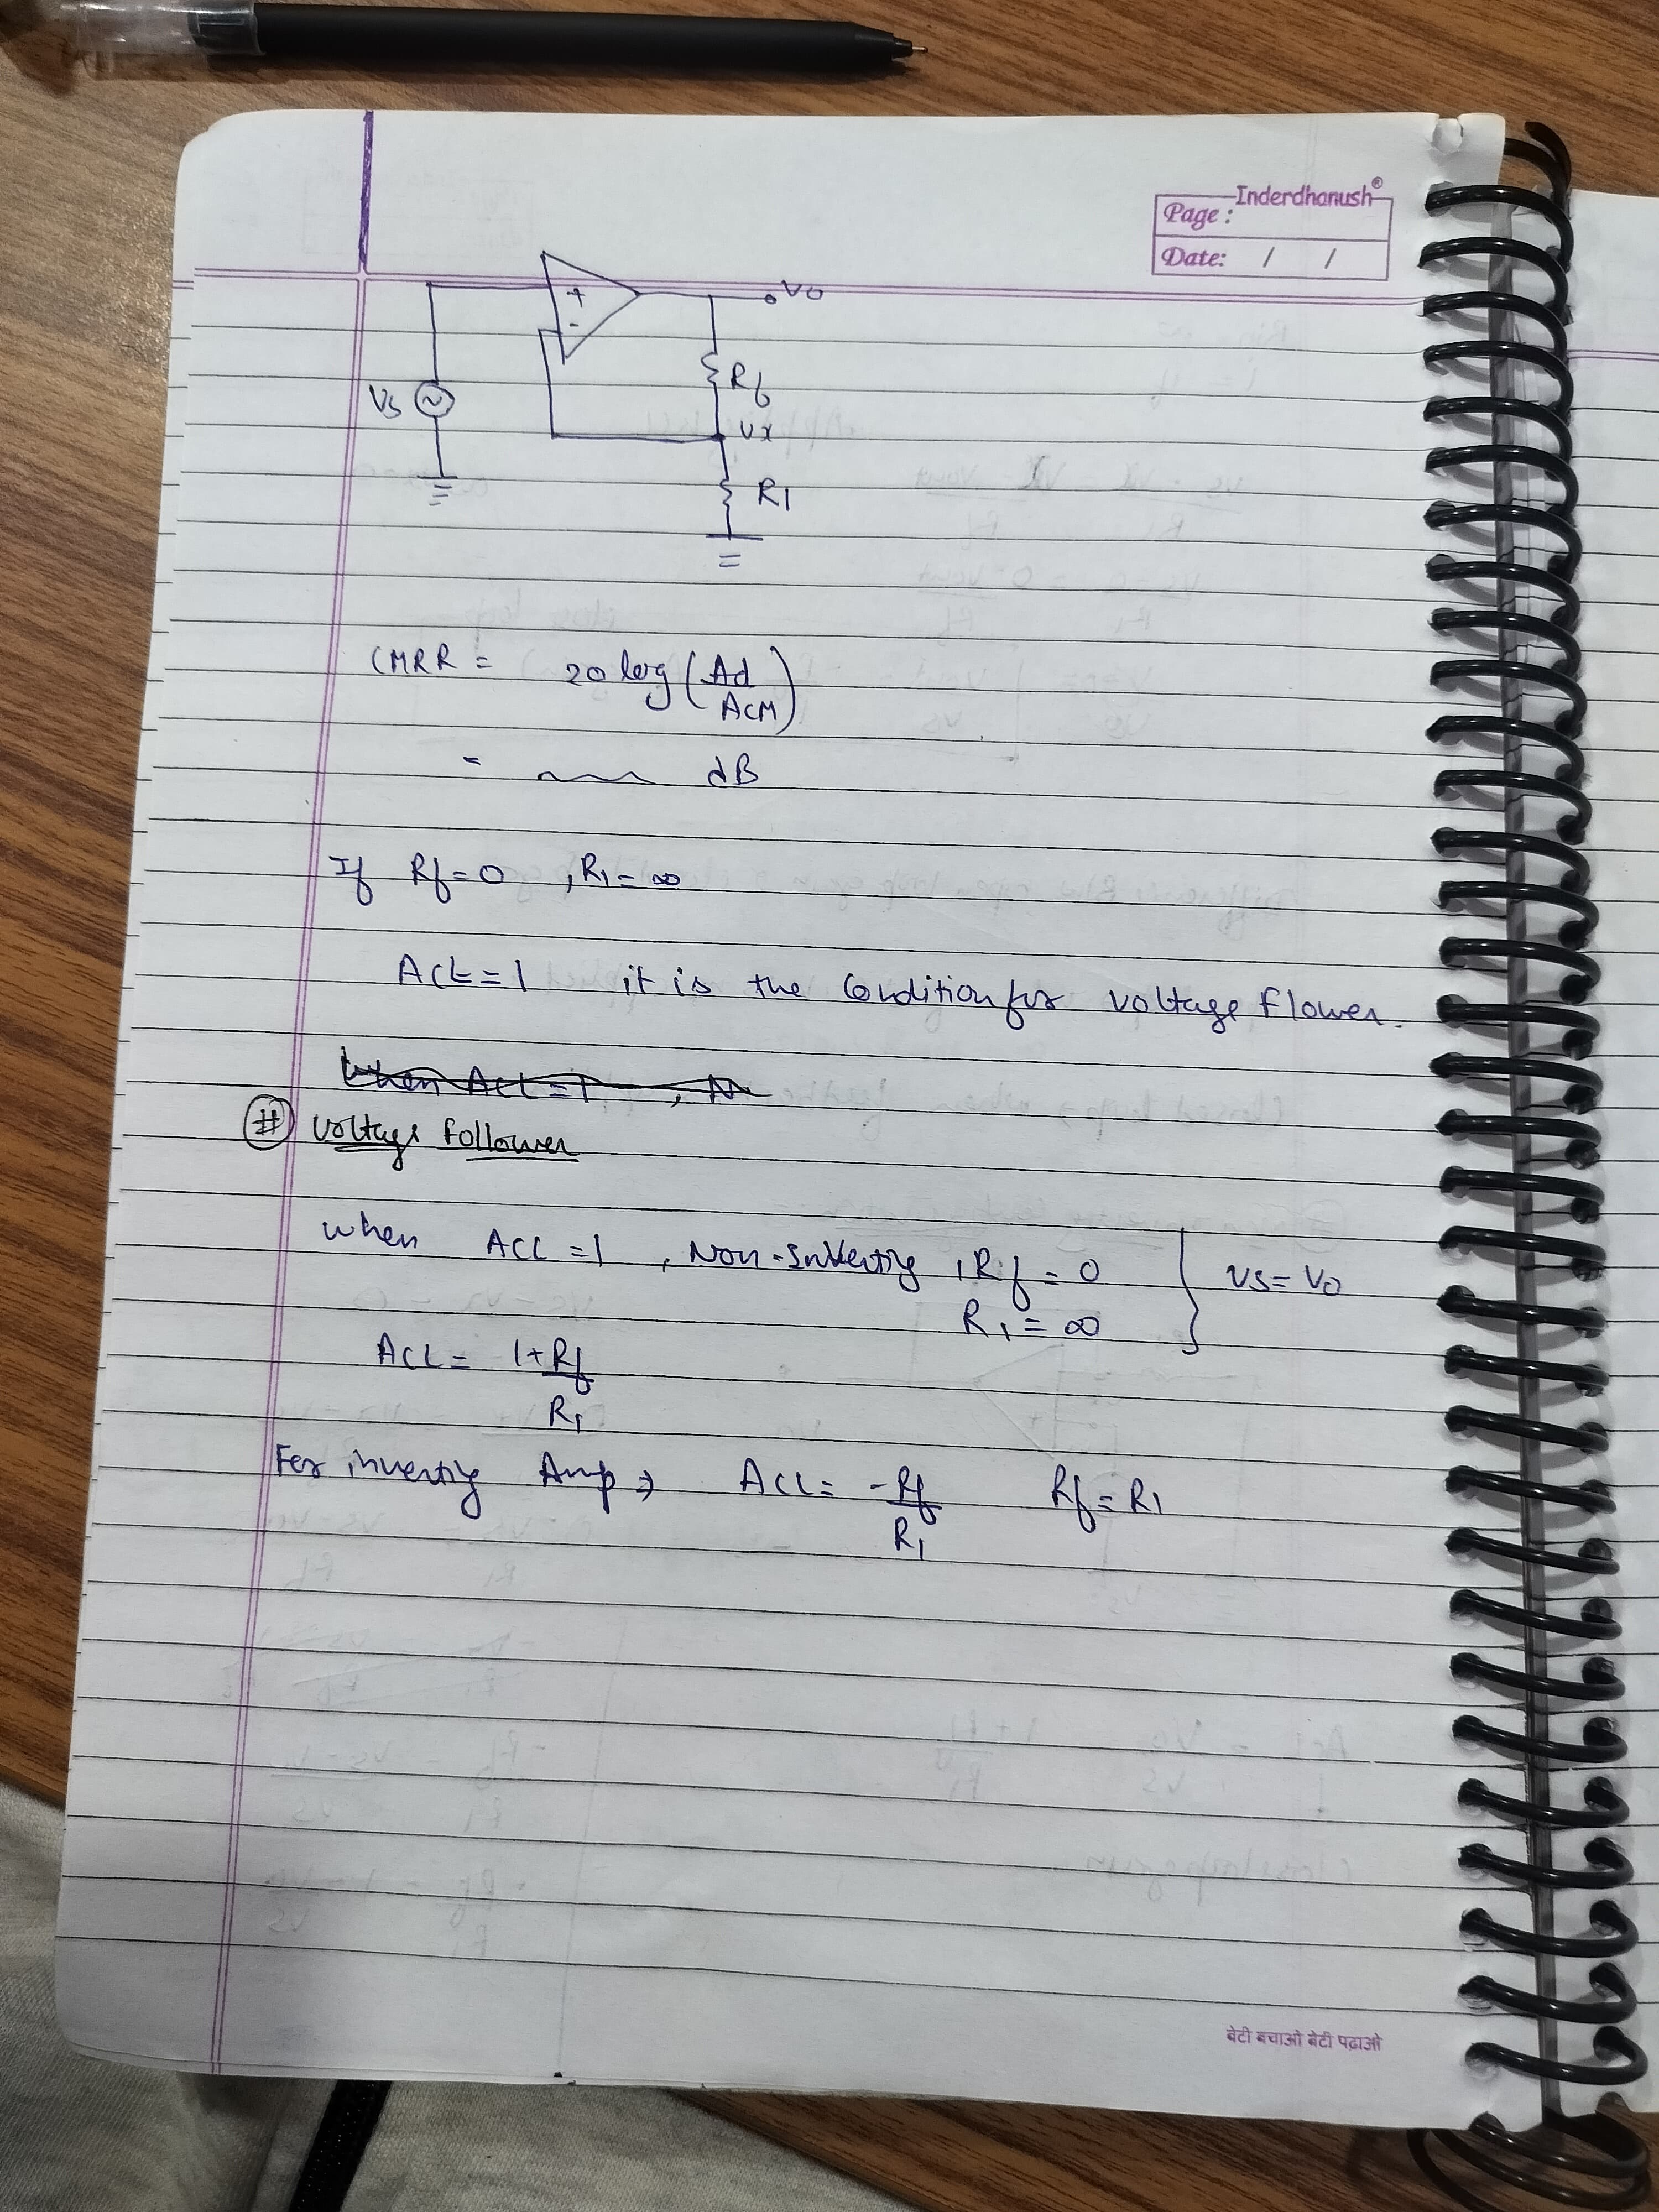 Inderdhanush®
Page :
Date: / /
+
-
Vo
Rf
Vs
Vx
R1
CMRR = 20 log (Ad/ACM)
= dB
If Rf = 0 , R1 = ∞
ACL = 1 it is the Condition for voltage flower.
When ACL = 1 ,
# Voltage follower
when ACL = 1 , Non-Inverting , Rf = 0
R1 = ∞ } Vs = Vo
ACL = 1 + Rf/R1
For inverting Amp → ACL = -Rf/R1 Rf = R1
बेटी बचाओ बेटी पढ़ाओ